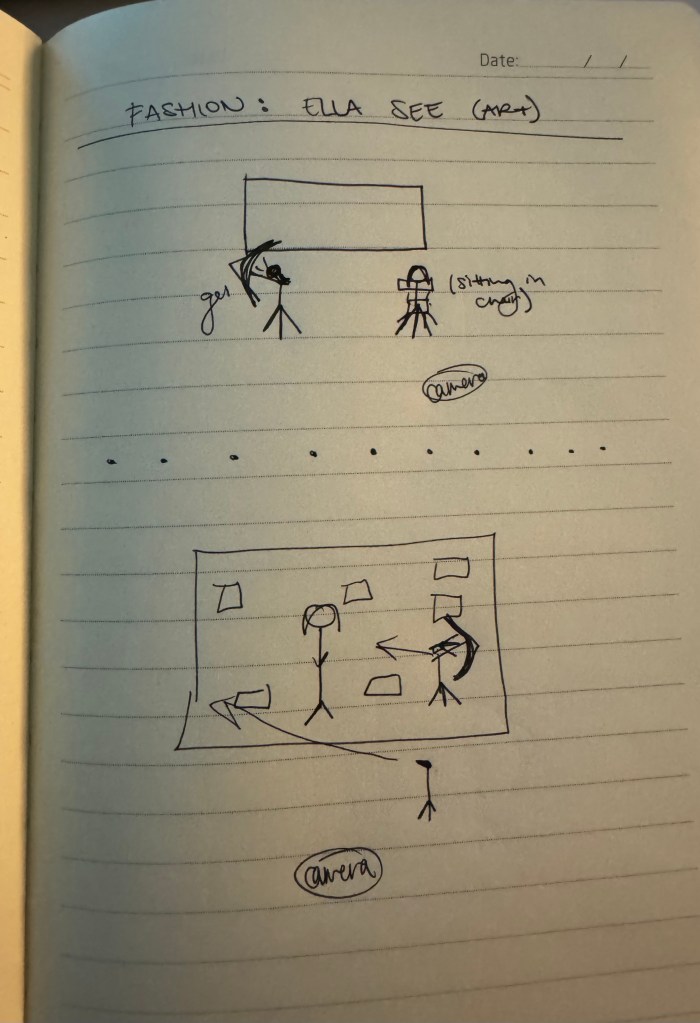 Date: / /
FASHION: ELLA SEE (ART)
gel
(sitting in
chair)
camera
camera